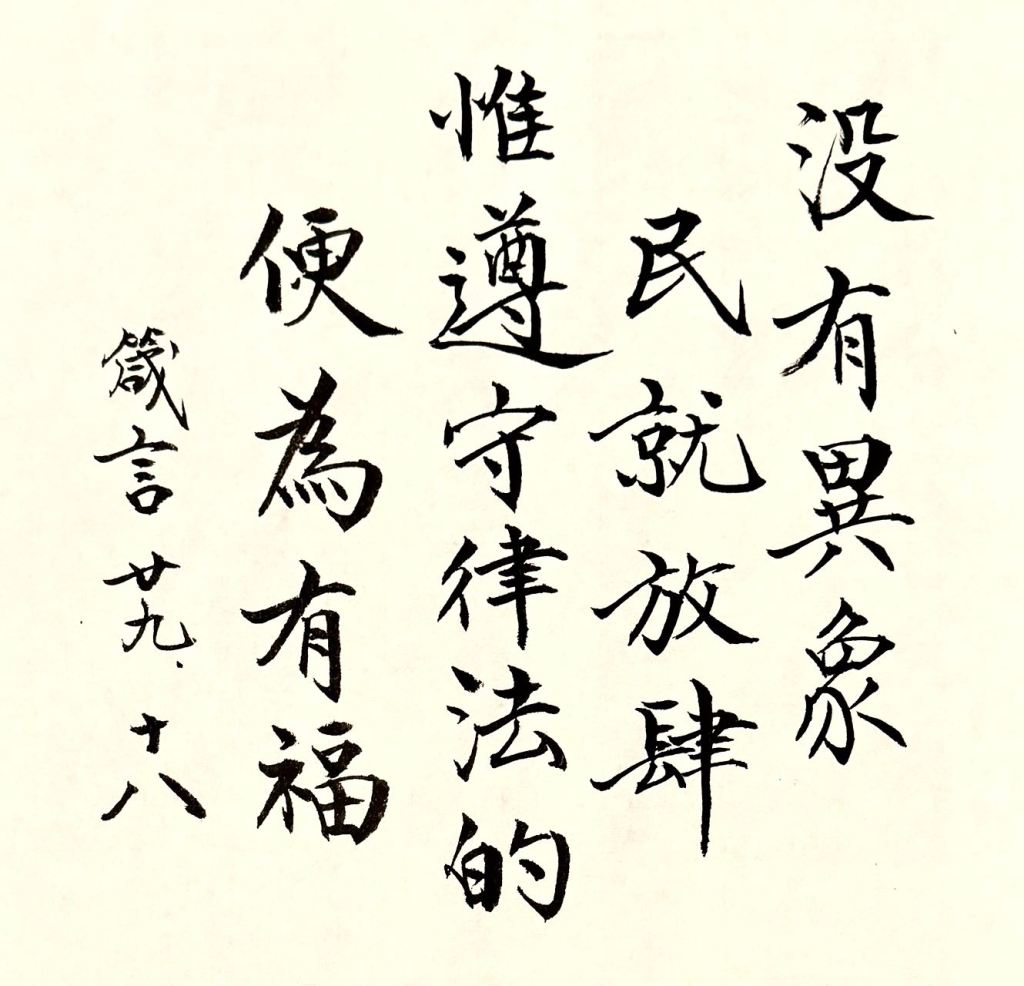 没有異象
民就放肆
惟遵守律法的
便為有福
箴言廿九.十八